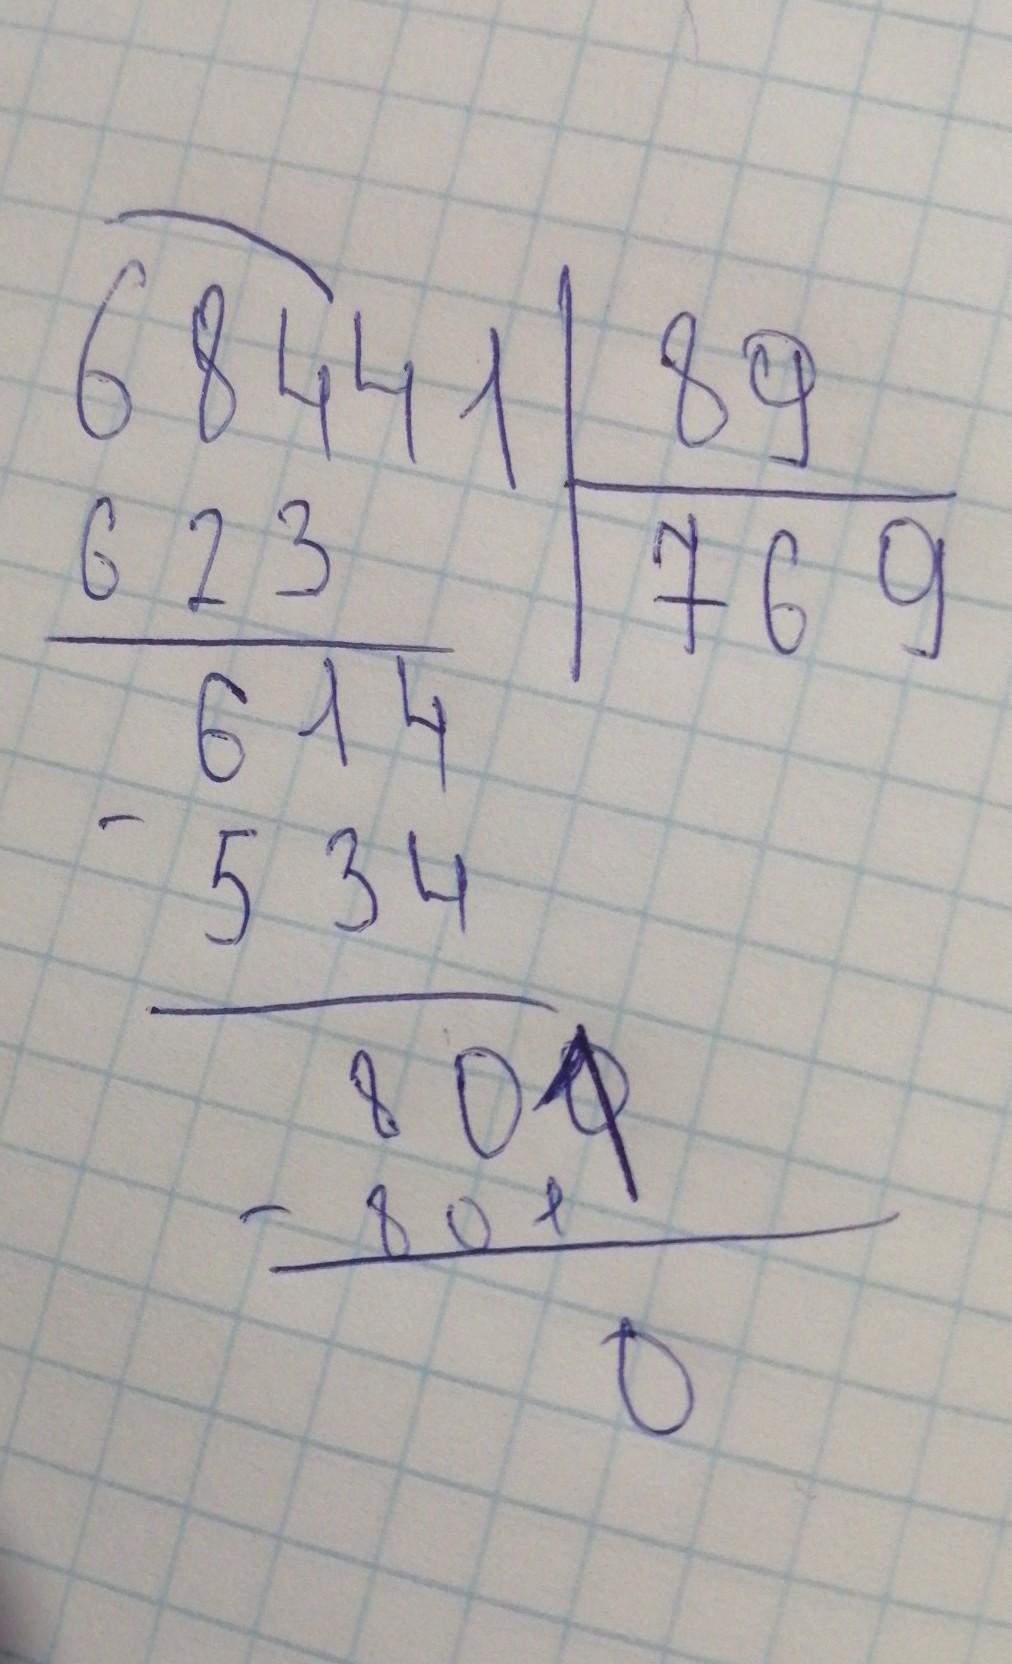 68441 89
623 769
614
- 534
801
- 801
0